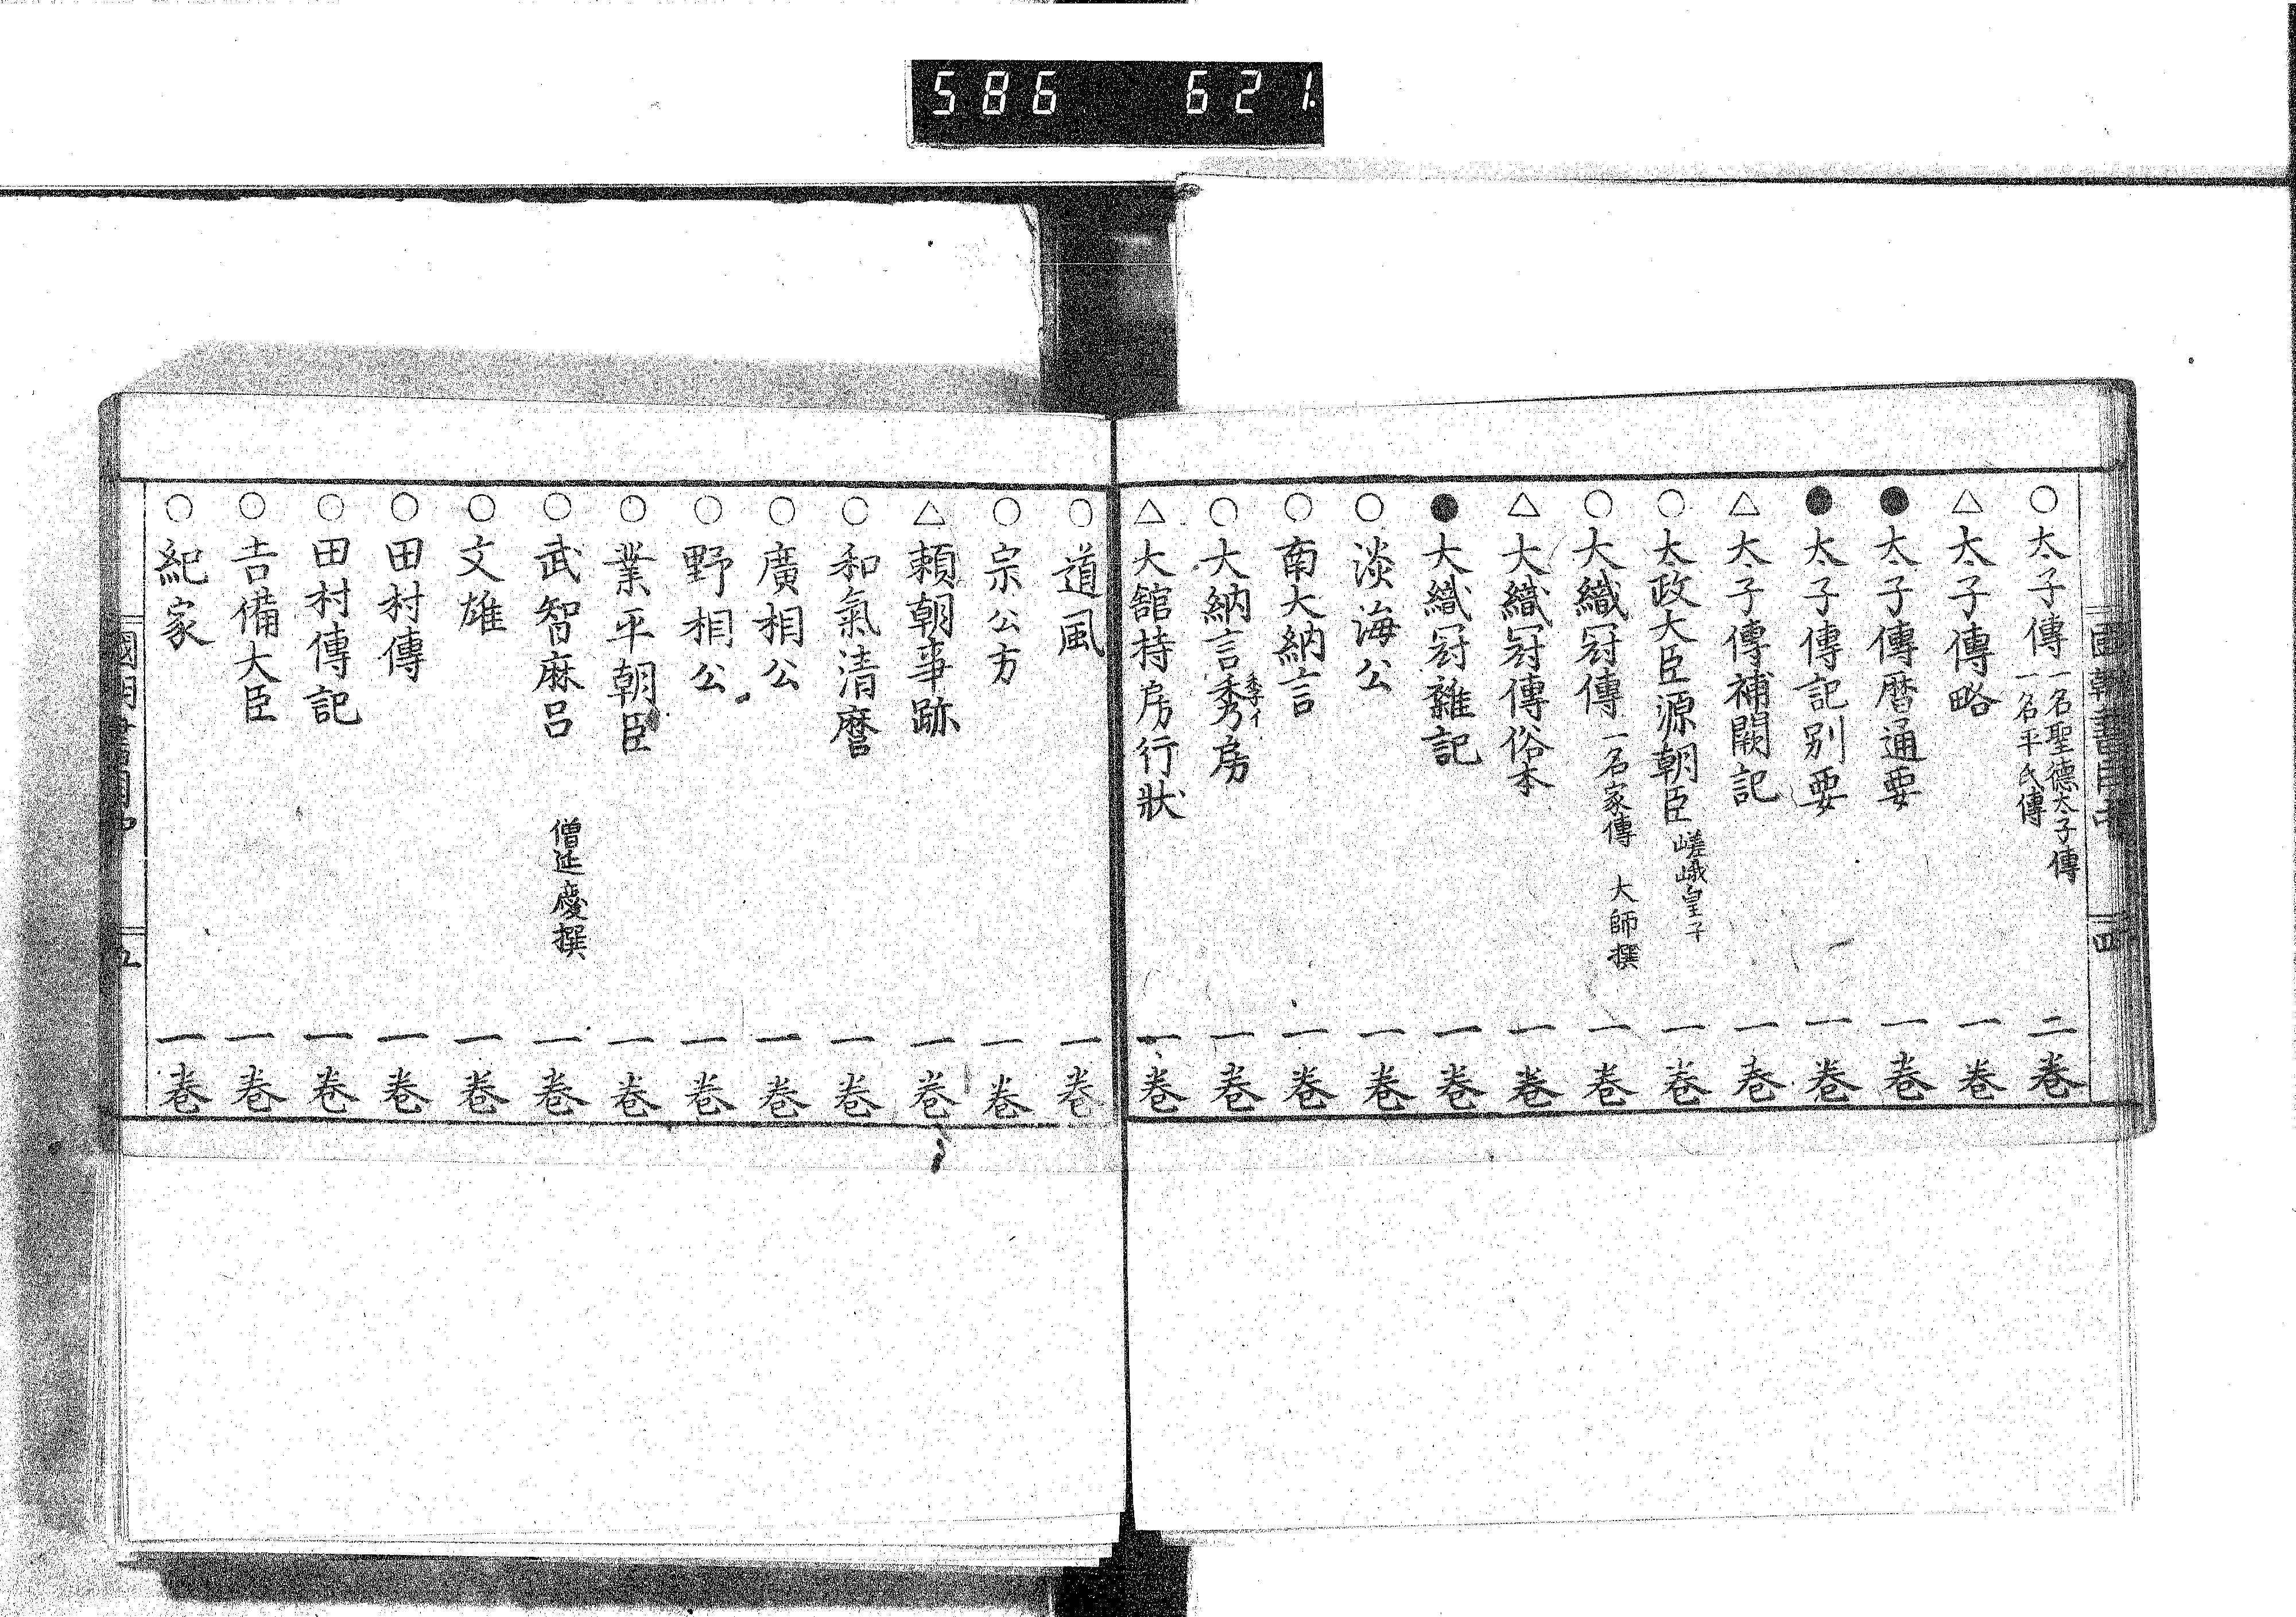 586 621.
○太子傳 一名聖德太子傳 一名平氏傳 二卷
△太子傳略 一卷
●太子傳曆通要 一卷
●太子傳記别要 一卷
△太子傳補闕記 一卷
○太政大臣源朝臣 嵯峨皇子 一卷
○大織冠傳 一名家傳 大師撰 一卷
△大織冠傳俗本 一卷
●大織冠雜記 一卷
○淡海公 一卷
○南大納言 一卷
○大納言秀房 季イ 一卷
△大舘持房行狀 一卷
四
○道風 一卷
○宗公方 一卷
△賴朝事跡 一卷
○和氣清麿 一卷
○廣相公 一卷
○野相公 一卷
○業平朝臣 一卷
○武智麻呂 僧延慶撰 一卷
○文雄 一卷
○田村傳 一卷
○田村傳記 一卷
○吉備大臣 一卷
○紀家 一卷
五